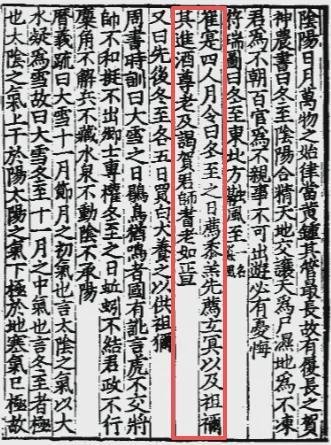 陰陽日月萬物之始律當黄鍾其管最長故有履長之賀
神農書曰冬至陰陽合精天地交讓天爲尸濕地爲不凍
君爲不朝百官爲不親事不可出遊必有憂悔
符瑞圖曰冬至東北方風至
崔寔四人月令曰冬至之日薦黍羔先薦玄冥以及祖禰
其進酒尊老及謁賀君師耆老如正旦
又曰先後冬至各五日買白犬養之以供祖禰
周書時訓曰大雪之日鶡鳥猶鳴者國有訛言虎不交將
帥不和挺不出卿士專權冬至之日蚯蚓不結君政不行
麋角不解兵不藏水泉不動陰不承陽
曆義疏曰大雪十一月節月之初氣也言太陰之氣以大
水凝爲雪故曰大雪冬至十一月之中氣也言冬至者極
也太陰之氣上干於陽太陽之氣下極於地寒氣已極故